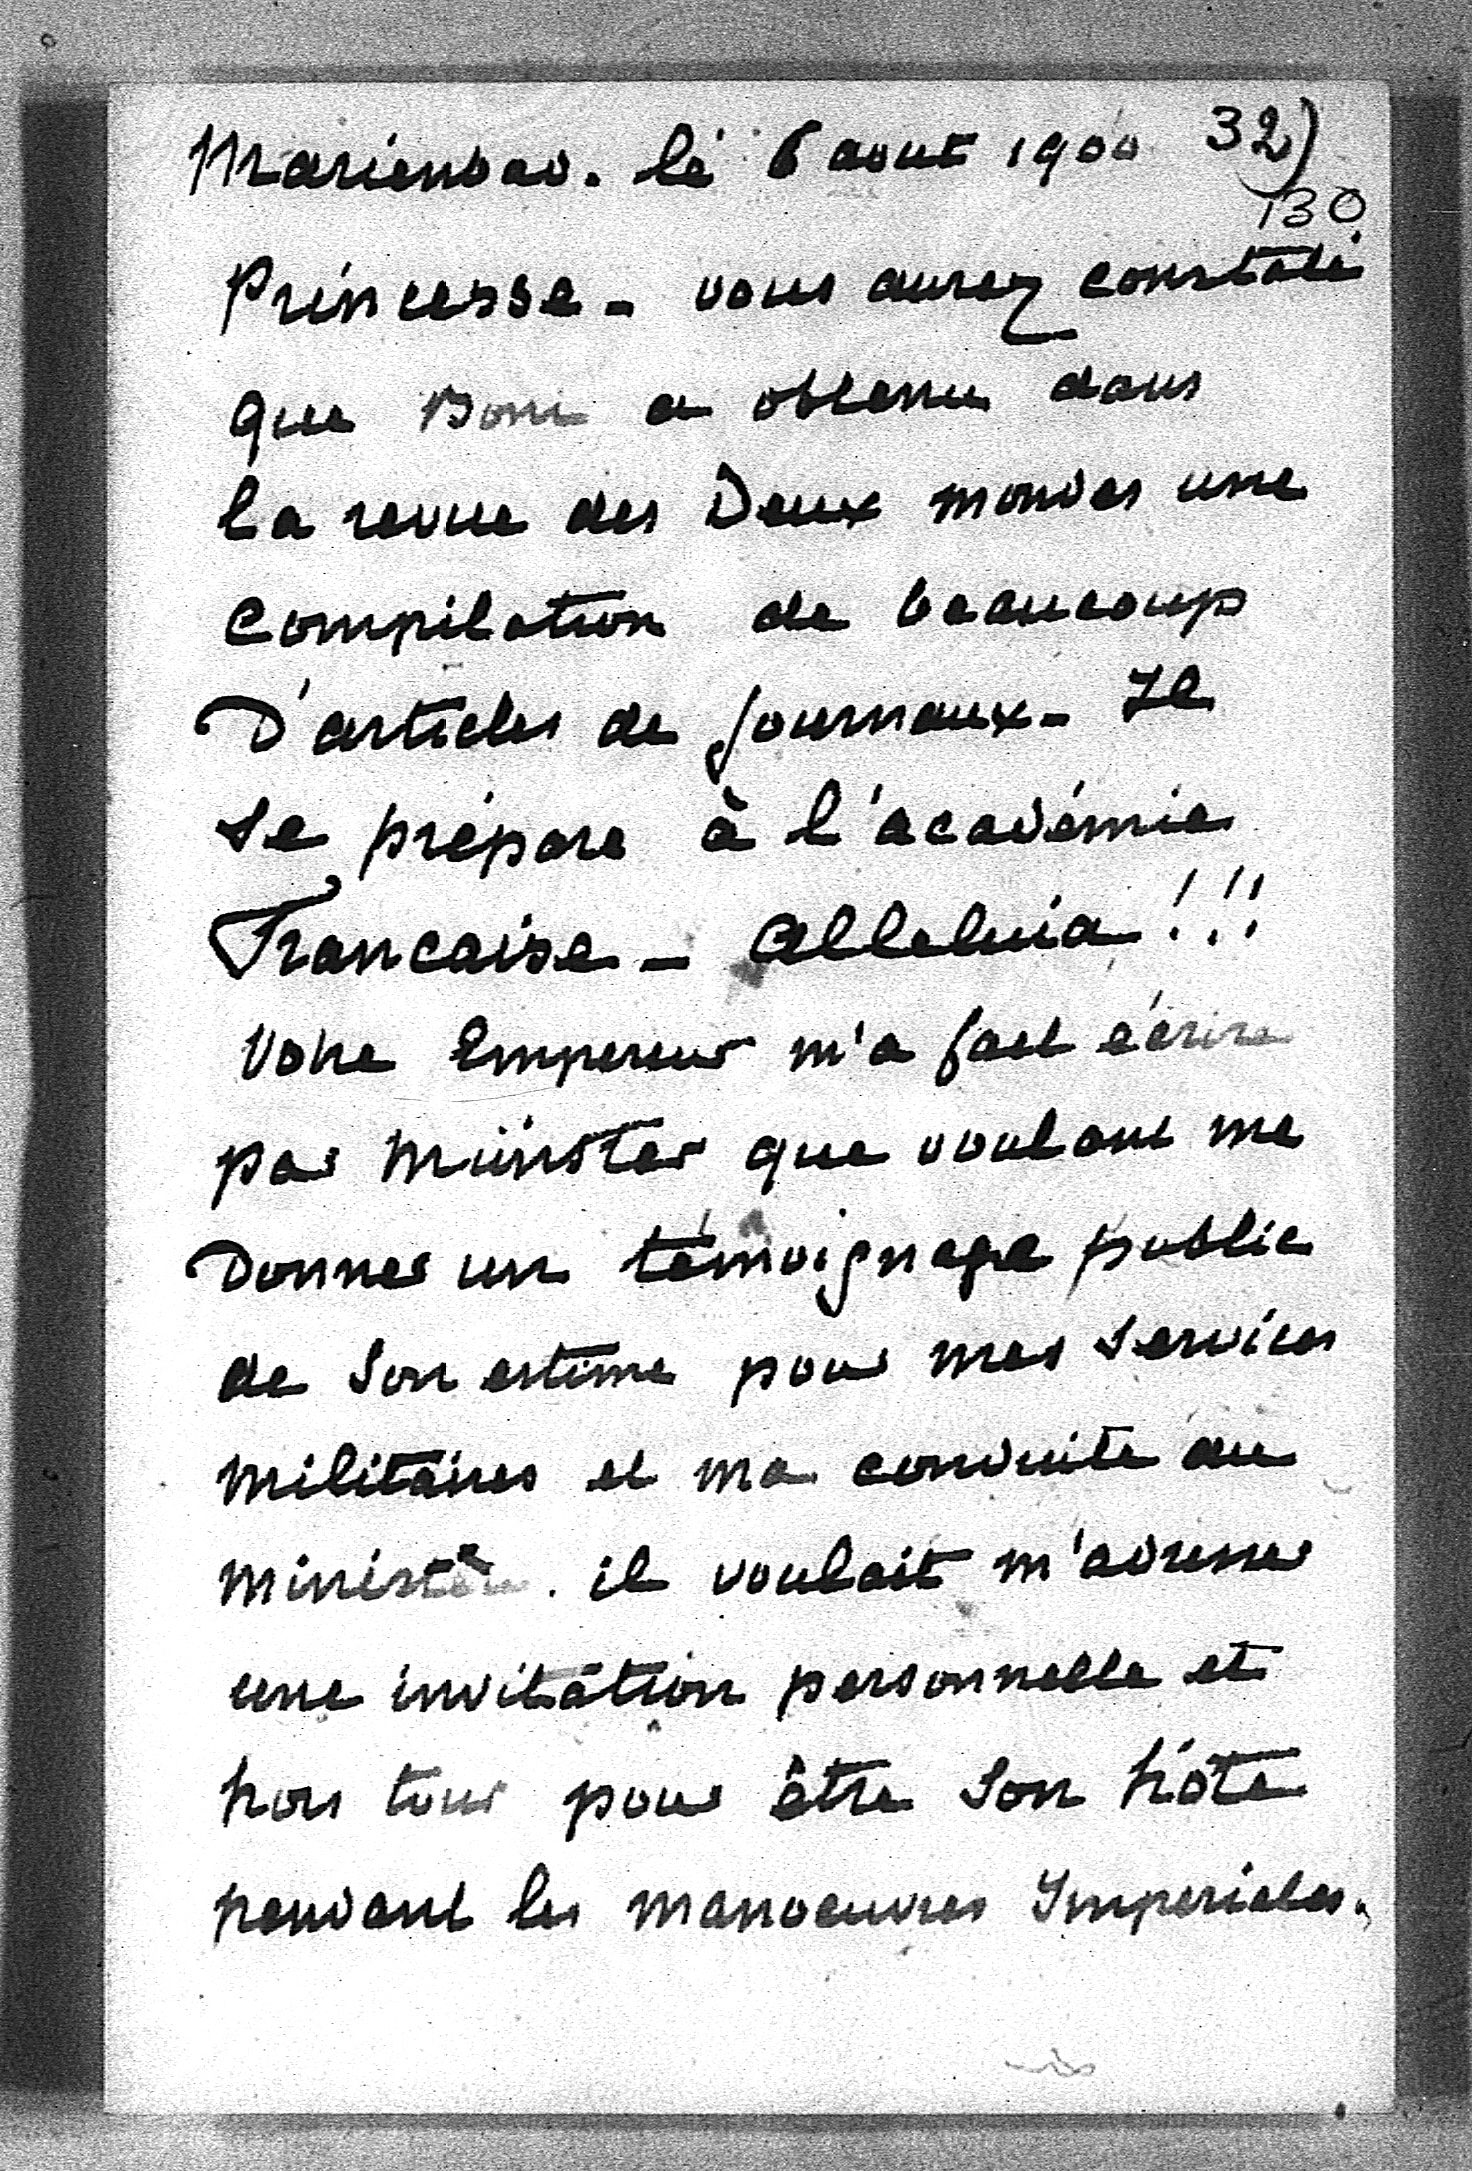 Marienbad. le 6 aout 1900 32)
130
Princesse - vous aurez constaté
que Boni a obtenu dans
la revue des Deux mondes une
Compilation de beaucoup
D'articles de journaux - Il
se prépare à l'académie
Francaise - Alleluia !!!
Votre Empereur m'a fait écrire
par Münster que voulant me
Donner un témoignage public
de son estime pour mes services
militaires et ma conduite au
ministère. il voulait m'adresser
une invitation personnelle et
hors tour pour être son hôte
pendant les manoeuvres Imperiales.